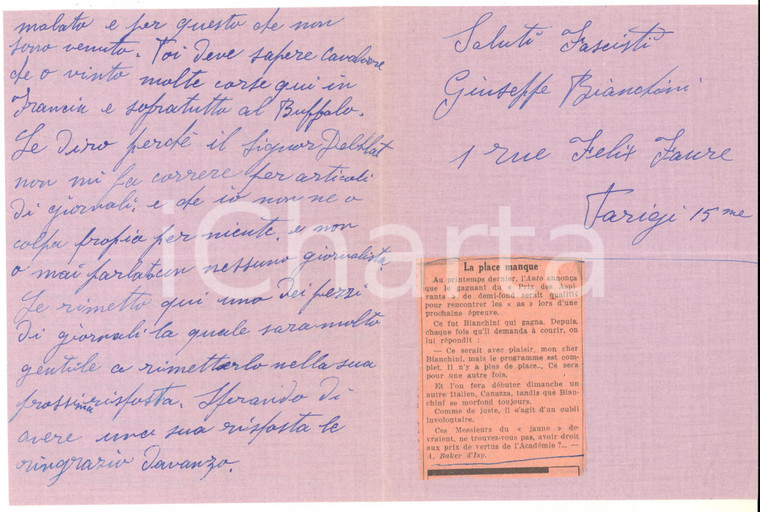 malato e per questo che non
sono venuto. Poi deve sapere Cavaliere
che o vinto molte corse qui in
Francia e sopratutto al Buffalo.
Le diro perchè il Signor
non mi fa correre per articoli
di giornali, e che io non ne o
colpa propia per niente. e non
o mai parlato con nessuno giornalista
Le rimetto qui uno dei pezzi
di giornali la quale sara molto
gentile a rimetterlo nella sua
prossima risposta. Sperando di
avere una sua risposta le
ringrazio davanzo.
Saluti Fascisti
Giuseppe Bianchini
1 rue Felix Faure
Parigi 15 me
La place manque
Au printemps dernier, l'Auto annonça
que le gagnant du « Prix des Aspi-
rants » de demi-fond serait qualifié
pour rencontrer les « as » lors d'une
prochaine épreuve.
Ce fut Bianchini qui gagna. Depuis,
chaque fois qu'il demanda à courir, on
lui répondit :
— Ce serait avec plaisir, mon cher
Bianchini, mais le programme est com-
plet. Il n'y a plus de place... Ce sera
pour une autre fois.
Et l'on fera débuter dimanche un
autre Italien, Canazza, tandis que Bian-
chini se morfond toujours.
Comme de juste, il s'agit d'un oubli
involontaire.
Ces Messieurs du « jaune » de-
vraient, ne trouvez-vous pas, avoir droit
aux prix de vertus de l'Académie ?... —
A. Baker d'Isy.
iCharta